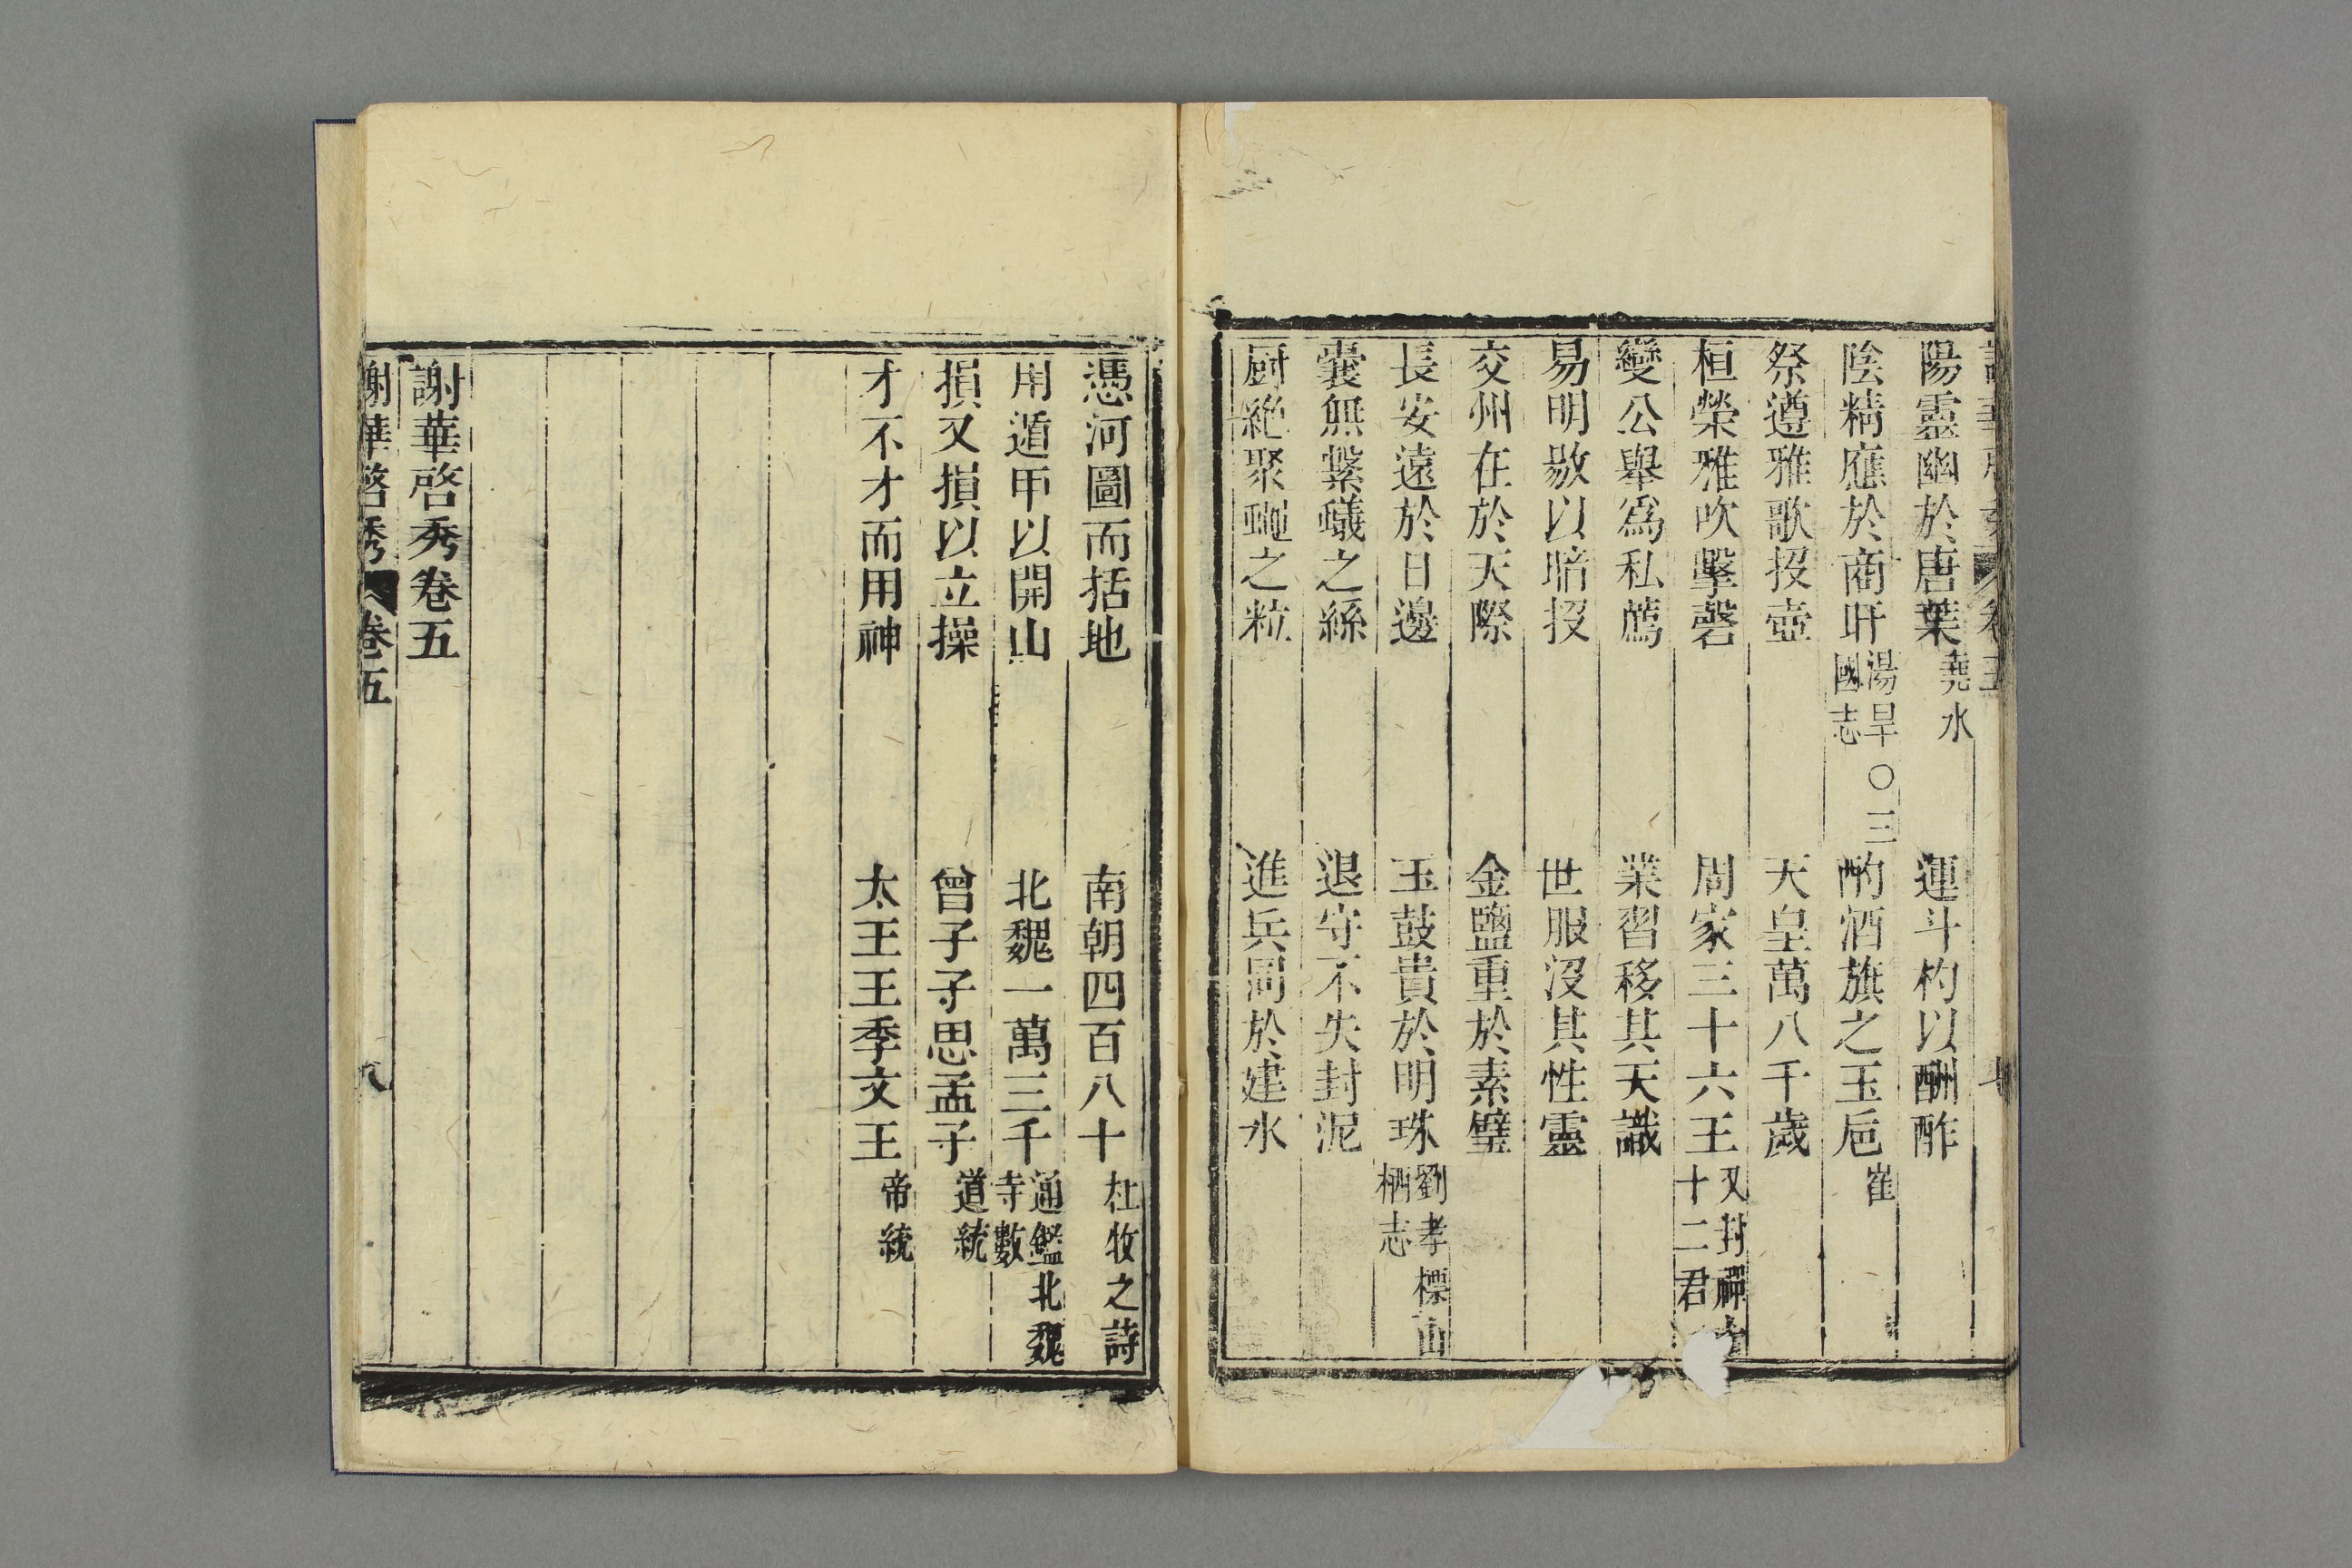 陽靈幽於唐葉堯水　運斗杓以酬酢
陰精應於商旰湯旱〇三國志　酌酒旗之玉巵崔
祭遵雅歌投壺　天皇萬八千歲
桓榮雅吹擊磬　周家三十六王又封禪七十二君
變公舉爲私薦　業習移其天識
易明敭以暗投　世服沒其性靈
交州在於天際　金鹽重於素璧
長安遠於日邊　玉鼓貴於明珠劉孝標山栖志
囊無繫蟻之絲　退守不失封泥
厨絶聚蠅之粒　進兵周於建水
憑河圖而括地　南朝四百八十杜牧之詩
用遁甲以開山　北魏一萬三千通鑑北魏寺數
損又損以立操　曾子子思孟子道統
才不才而用神　太王王季文王帝統
謝華啓秀卷五
謝華啓秀　卷五　八